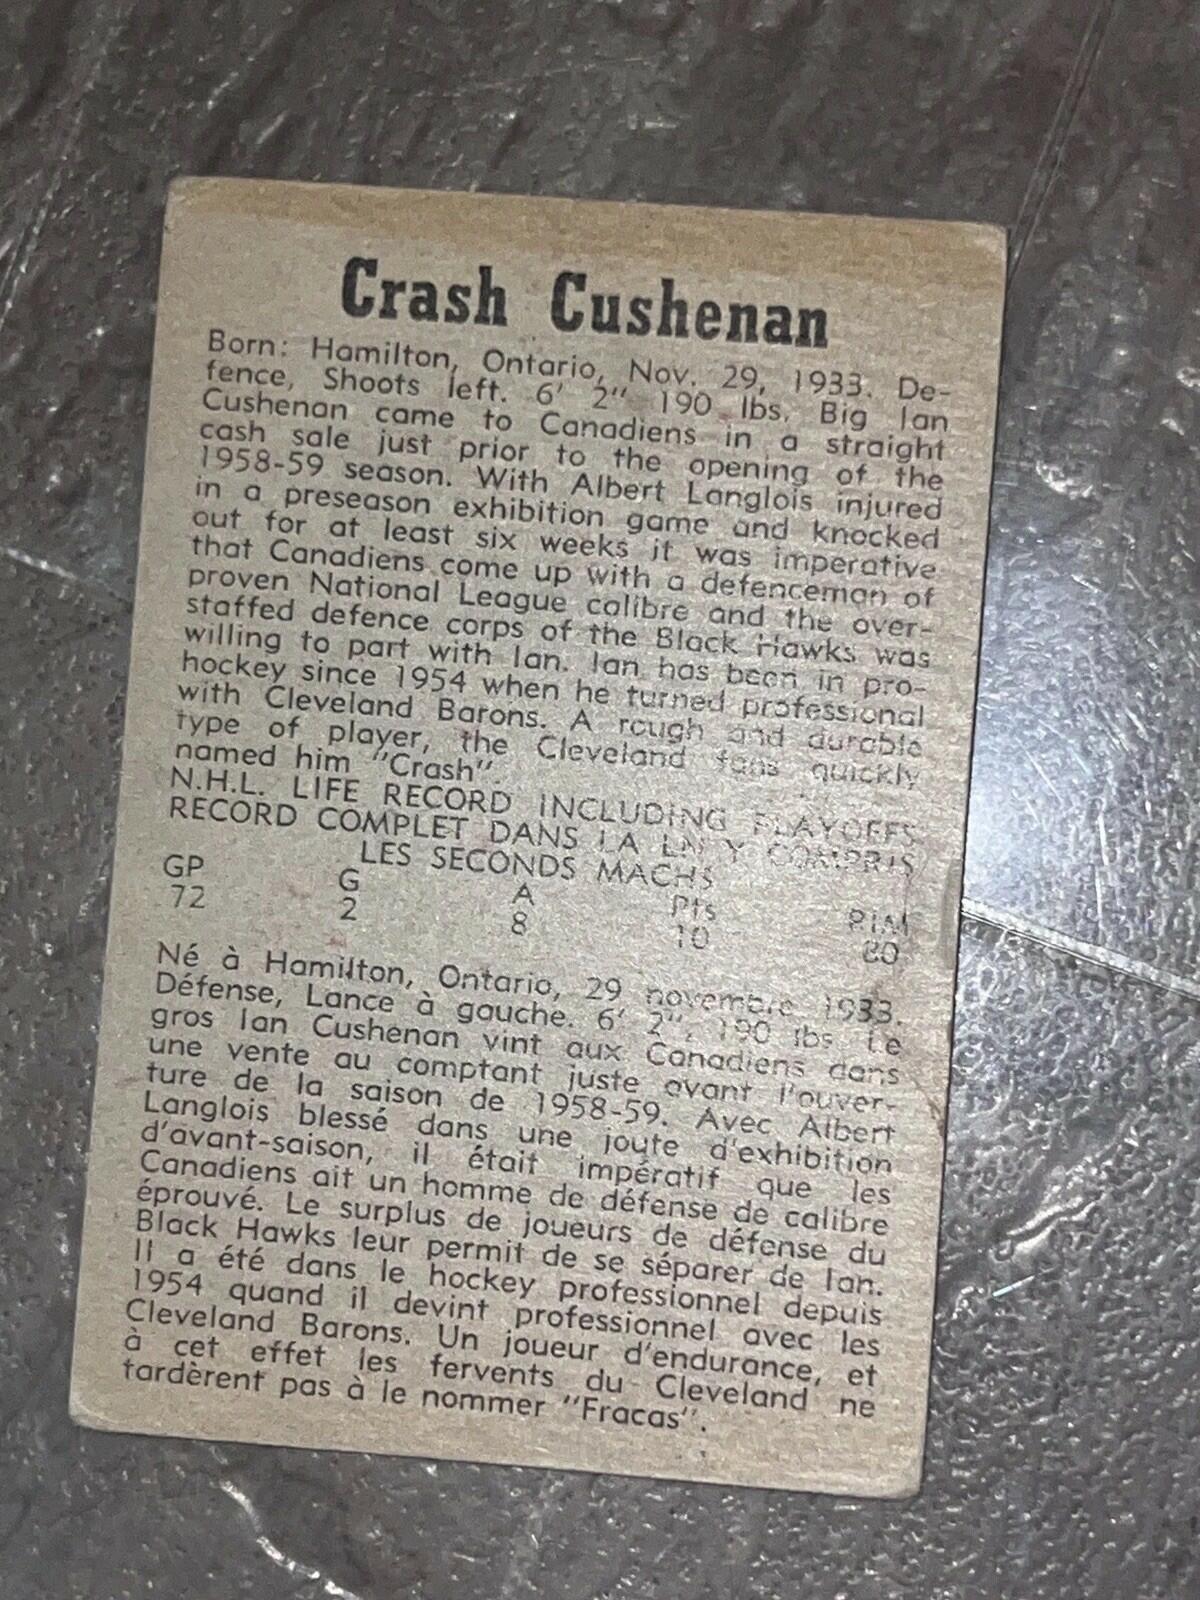 Crash Cushenan
Born: Hamilton, Ontario, Nov. 29, 1933. De-
fence, Shoots left. 6' 2" 190 lbs. Big Ian
Cushenan came to Canadiens in a straight
cash sale just prior to the opening of the
1958-59 season. With Albert Langlois injured
in a preseason exhibition game and knocked
out for at least six weeks it was imperative
that Canadiens come up with a defenceman of
proven National League calibre and the over-
staffed defence corps of the Black Hawks was
willing to part with Ian. Ian has been in pro-
hockey since 1954 when he turned professional
with Cleveland Barons. A rough and durable
type of player, the Cleveland fans quickly
named him "Crash".
N.H.L. LIFE RECORD INCLUDING PLAYOFFS
RECORD COMPLET DANS LA LN Y COMPRIS
LES SECONDS MACHS
GP G A Pts PIM
72 2 8 10 80
Né à Hamilton, Ontario, 29 novembre 1933.
Défense, Lance à gauche. 6' 2", 190 lbs Le
gros Ian Cushenan vint aux Canadiens dans
une vente au comptant juste avant l'ouver-
ture de la saison de 1958-59. Avec Albert
Langlois blessé dans une joute d'exhibition
d'avant-saison, il était impératif que les
Canadiens ait un homme de défense de calibre
éprouvé. Le surplus de joueurs de défense du
Black Hawks leur permit de se séparer de Ian.
Il a été dans le hockey professionnel depuis
1954 quand il devint professionnel avec les
Cleveland Barons. Un joueur d'endurance, et
à cet effet les fervents du Cleveland ne
tardèrent pas à le nommer "Fracas".